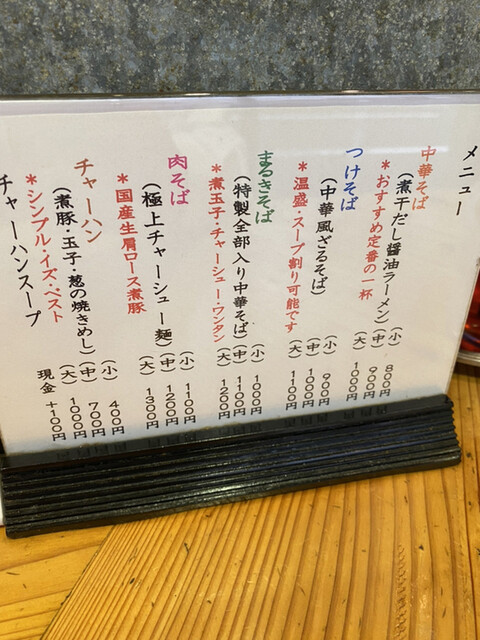 メニュー
中華そば
(煮干だし醤油ラーメン)
*おすすめ定番の一杯
(小) 800円
(中) 900円
(大) 1000円
つけそば
(中華風ざるそば)
*温盛・スープ割り可能です
(小) 900円
(中) 1000円
(大) 1100円
まるきそば
(特製全部入り中華そば)
*煮玉子・チャーシュー・ワンタン
(小) 1000円
(中) 1100円
(大) 1200円
肉そば
(極上チャーシュー麺)
*国産生肩ロース煮豚
(小) 1100円
(中) 1200円
(大) 1300円
チャーハン
(煮豚・玉子・葱の焼きめし)
*シンプル・イズ・ベスト
(小) 400円
(中) 700円
(大) 1000円
チャーハンスープ
現金 +100円